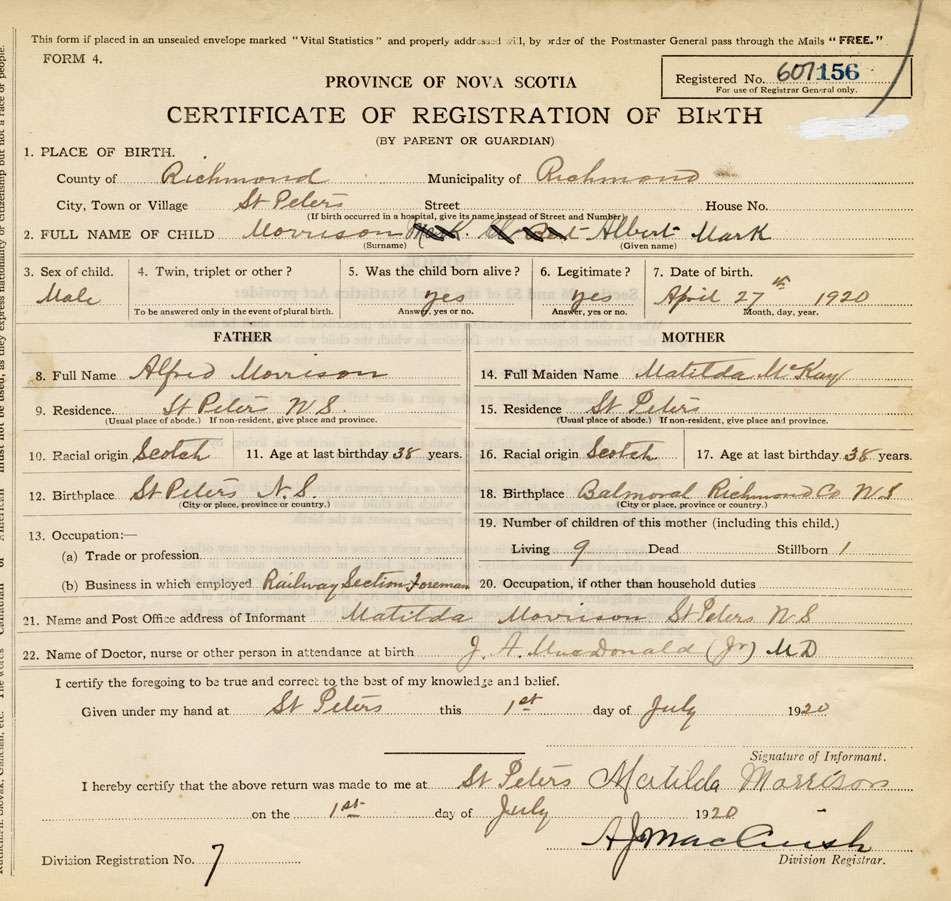 This form if placed in an unsealed envelope marked "Vital Statistics" and properly addressed will, by order of the Postmaster General pass through the Mails "FREE."
FORM 4.
Registered No. 607156
For use of Registrar General only.
PROVINCE OF NOVA SCOTIA
CERTIFICATE OF REGISTRATION OF BIRTH
(BY PARENT OR GUARDIAN)
1. PLACE OF BIRTH.
County of Richmond Municipality of Richmond
City, Town or Village St Peters Street House No.
(If birth occurred in a hospital, give its name instead of Street and Number)
2. FULL NAME OF CHILD Morrison Albert Mark
(Surname) (Given name)
3. Sex of child. 4. Twin, triplet or other? 5. Was the child born alive? 6. Legitimate? 7. Date of birth.
Male yes yes April 27th 1920
To be answered only in the event of plural birth. Answer, yes or no. Answer, yes or no. Month, day, year.
FATHER
8. Full Name Alfred Morrison
9. Residence. St Peters N.S.
(Usual place of abode.) If non-resident, give place and province.
10. Racial origin Scotch 11. Age at last birthday 38 years.
12. Birthplace St Peters N.S.
(City or place, province or country.)
13. Occupation:—
(a) Trade or profession
(b) Business in which employed Railway Section Foreman
MOTHER
14. Full Maiden Name Matilda McKay
15. Residence St Peters
(Usual place of abode.) If non-resident, give place and province.
16. Racial origin Scotch 17. Age at last birthday 38 years.
18. Birthplace Balmoral Richmond Co N S
(City or place, province or country.)
19. Number of children of this mother (including this child.)
Living 9 Dead Stillborn 1
20. Occupation, if other than household duties
21. Name and Post Office address of Informant Matilda Morrison St Peters N S
22. Name of Doctor, nurse or other person in attendance at birth J. A. MacDonald (Jr) M D
I certify the foregoing to be true and correct to the best of my knowledge and belief.
Given under my hand at St Peters this 1st day of July 1920
Signature of Informant.
I hereby certify that the above return was made to me at St Peters Matilda Morrison
on the 1st day of July 1920
A J MacCuish
Division Registration No. 7 Division Registrar.